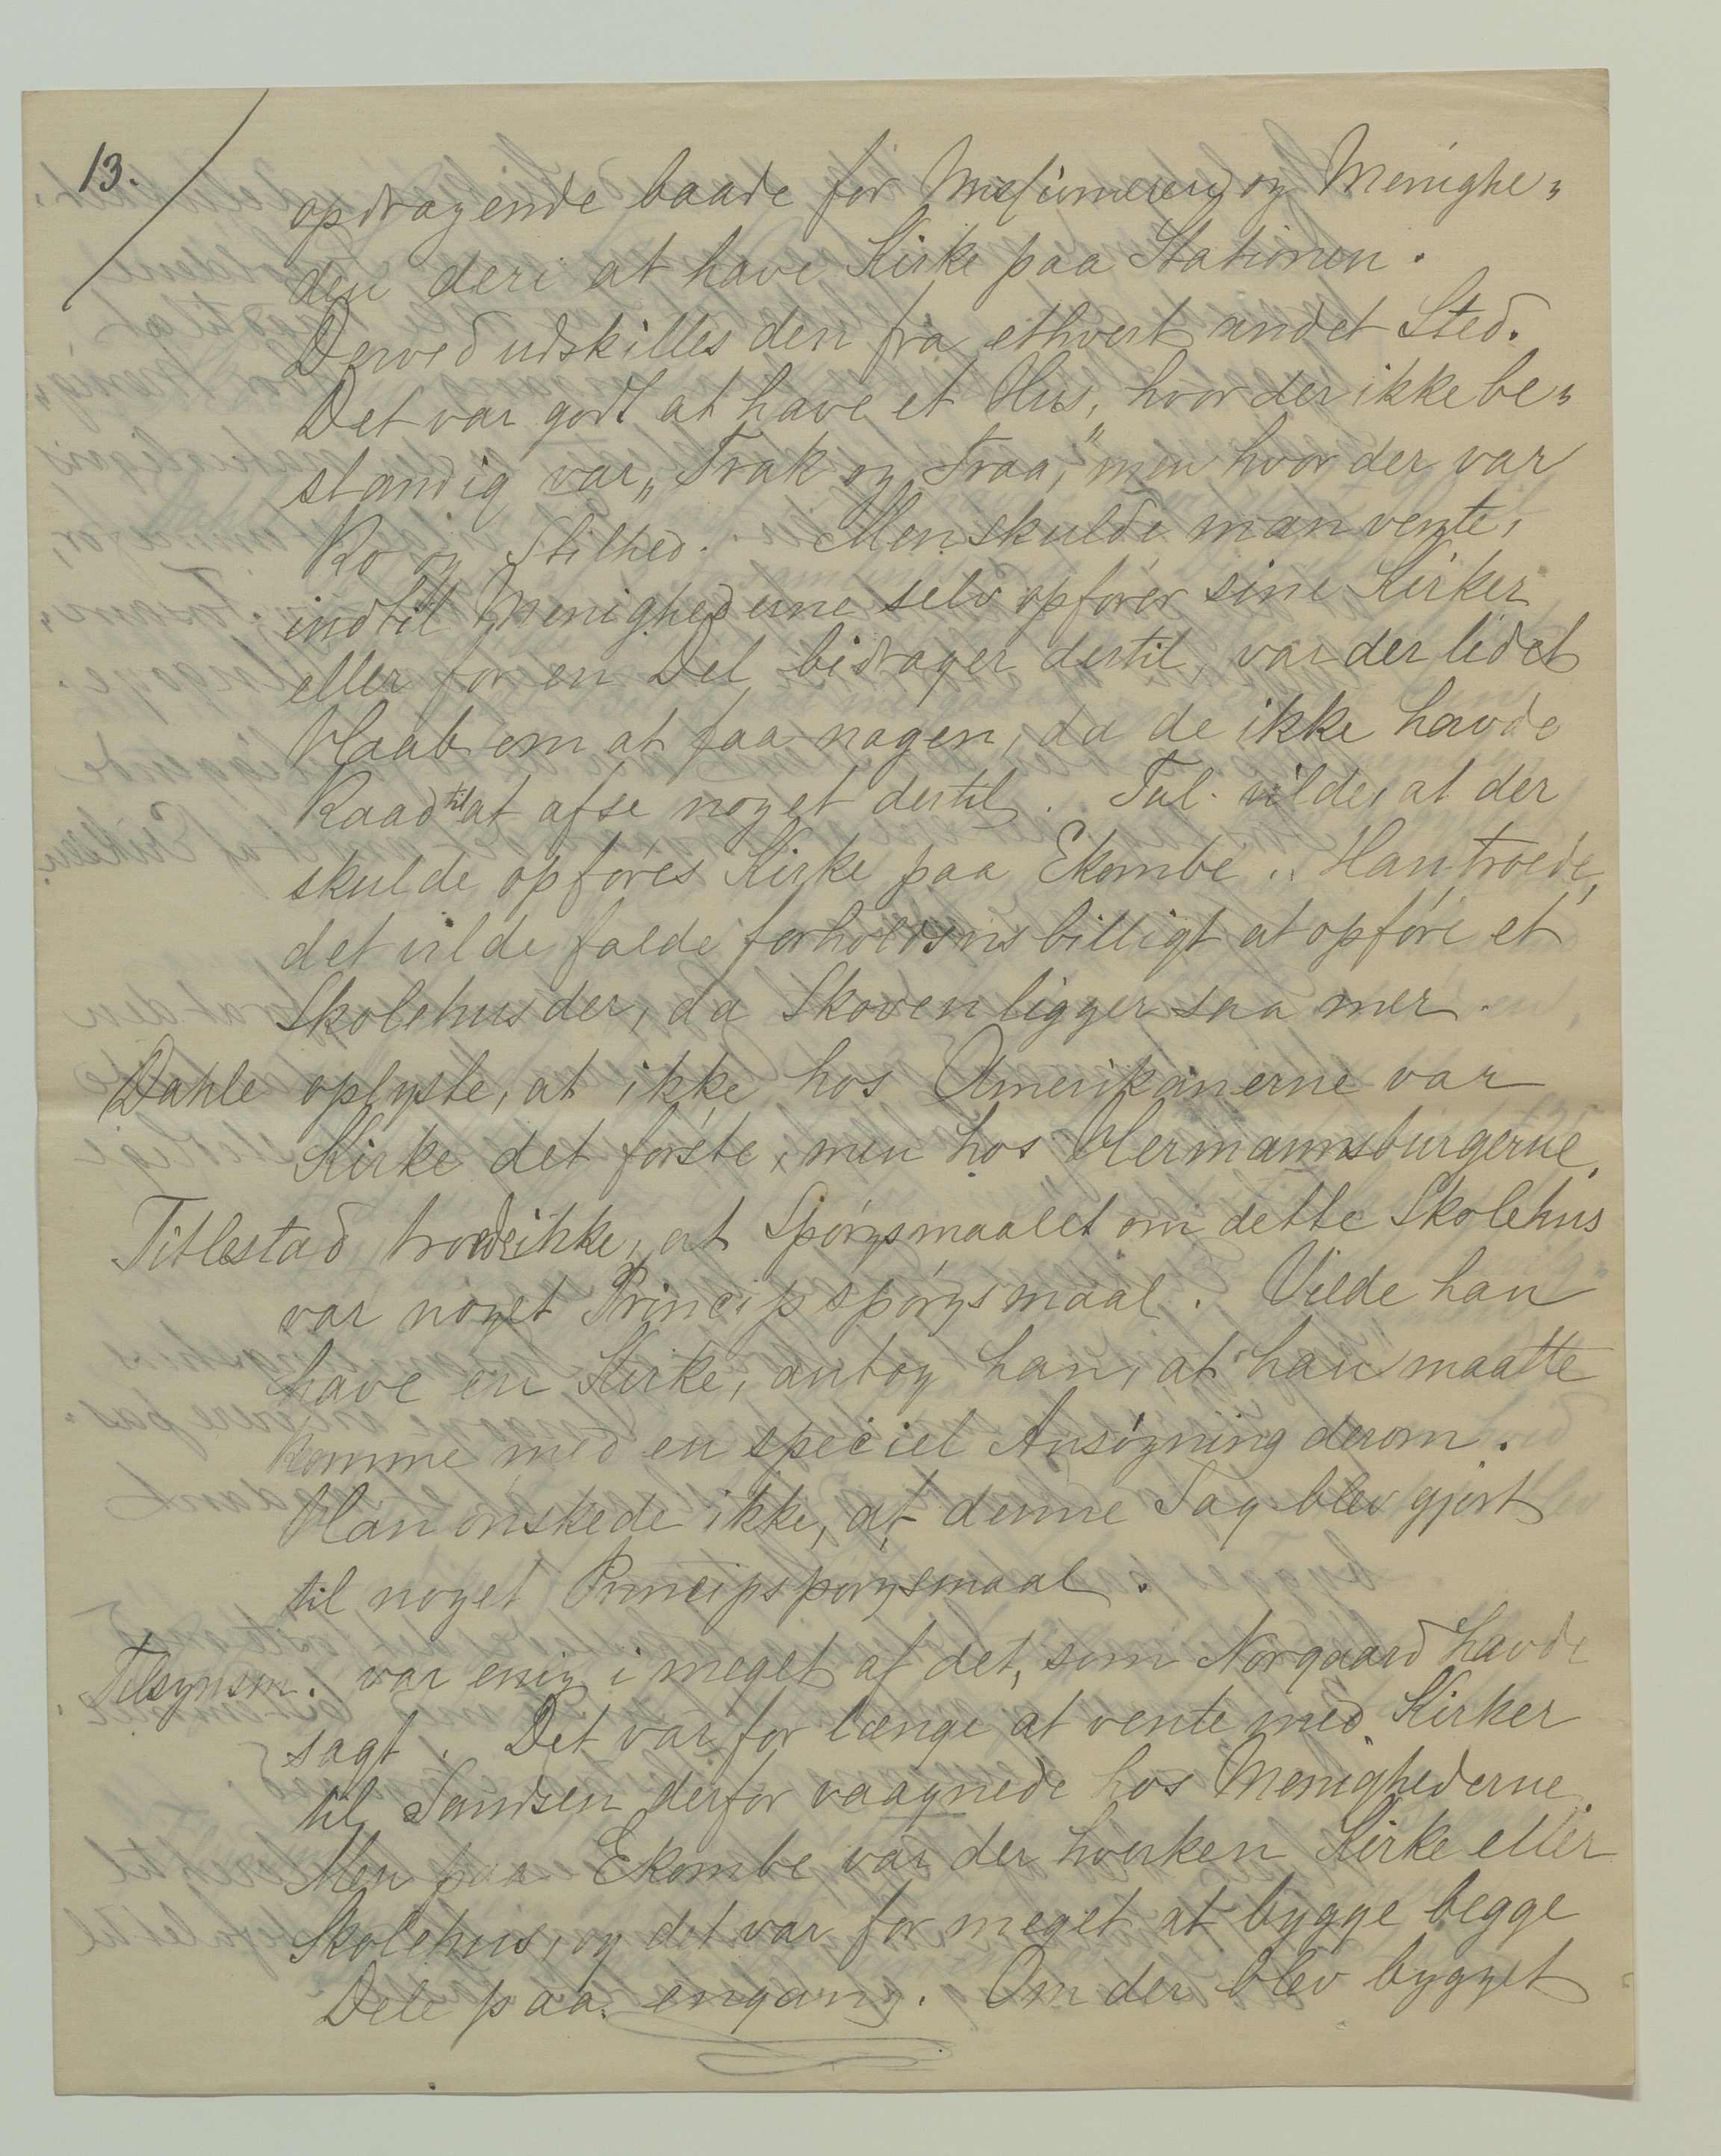 13.
opdragende baade for Missionæren og Menighe„
den deri at have Kirke paa Stationen.
Derved udskilles den fra ethvert andet Sted.
Det var godt at have et Hus, hvor der ikke be„
standig var „Trak og Traa," men hvor der var
Ro og Stilhed. Men skulde man vente,
indtil Menighederne selv opfører sine Kirker
eller for en Del bidrager dertil, var der lidet
Haab om at faa nogen, da de ikke havde
Raad til at afse noget dertil. Tal. vilde, at der
skulde opføres Kirke paa Ekombe. Han troede,
det vilde falde forholdsvis billigt at opføre et
Skolehus der, da Skoven ligger saa nær.
Dahle oplyste, at ikke hos Amerikanerne var
Kirke det første, men hos Hermannsburgerne.
Titlestad troede ikke, at Spørgsmaalet om dette Skolehus
var noget Principspørgsmaal. Vilde han
have en Kirke, antog han, at han maatte
komme med en speciel Ansøgning derom.
Han ønskede ikke, at denne Sag blev gjort
til noget Principspørgsmaal.
Tilsynsm. var enig i meget af det, som Norgaard havde
sagt. Det var for længe at vente med Kirker
til Sandsen derfor vaagnede hos Menighederne.
Men paa Ekombe var der hverken Kirke eller
Skolehus, og det var for meget at bygge begge
Dele paa engang. Om der blev bygget